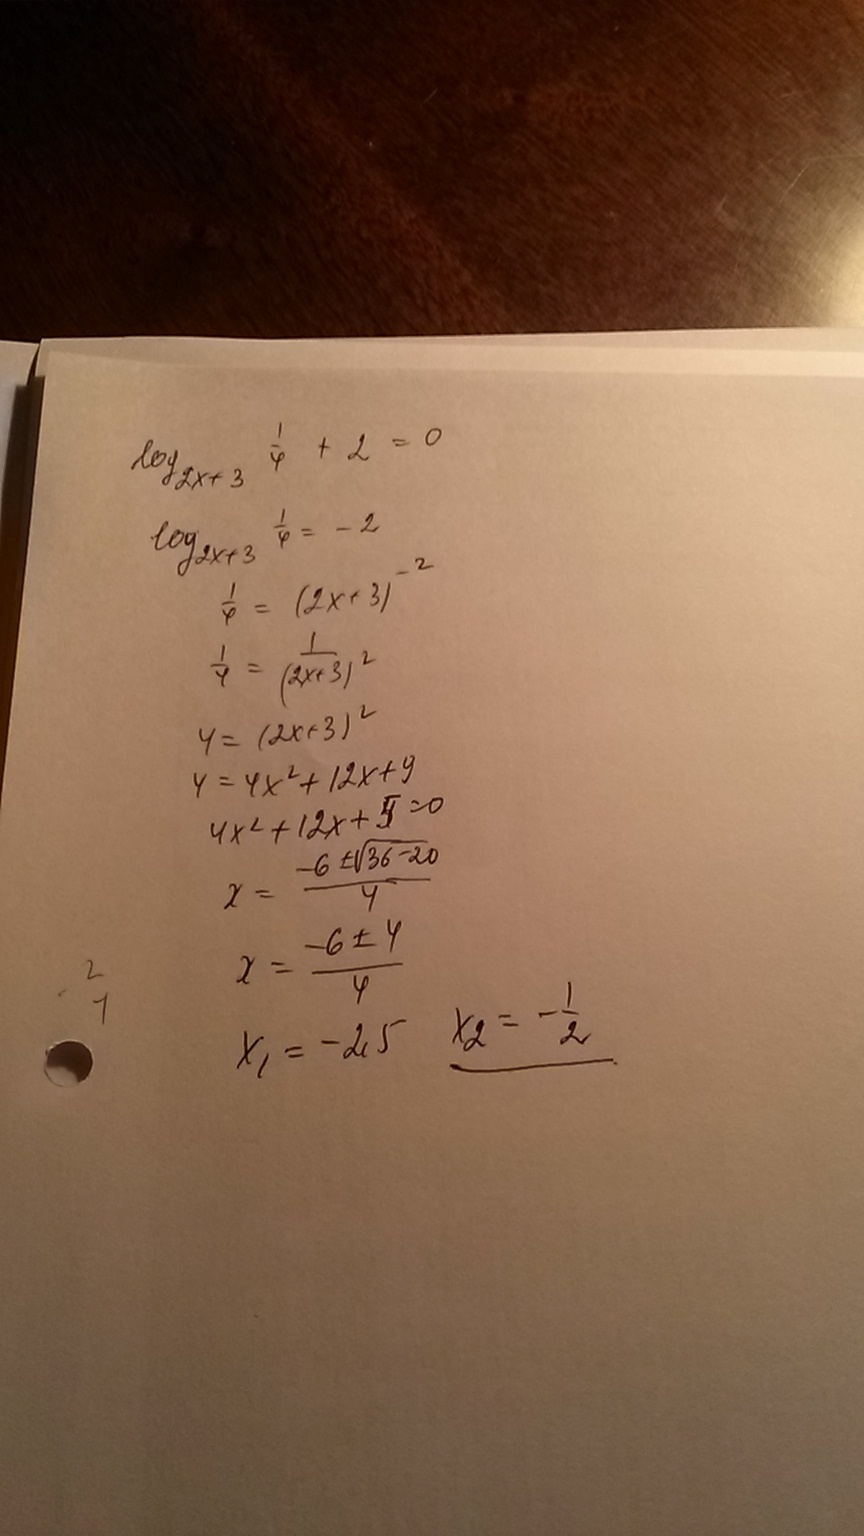 log_{2x+3} 1/4 + 2 = 0
log_{2x+3} 1/4 = -2
1/4 = (2x+3)^{-2}
1/4 = 1/(2x+3)^2
4 = (2x+3)^2
4 = 4x^2+12x+9
4x^2+12x+5=0
x = (-6±√(36-20))/4
x = (-6±4)/4
2
1
x_1 = -2,5 x_2 = -1/2